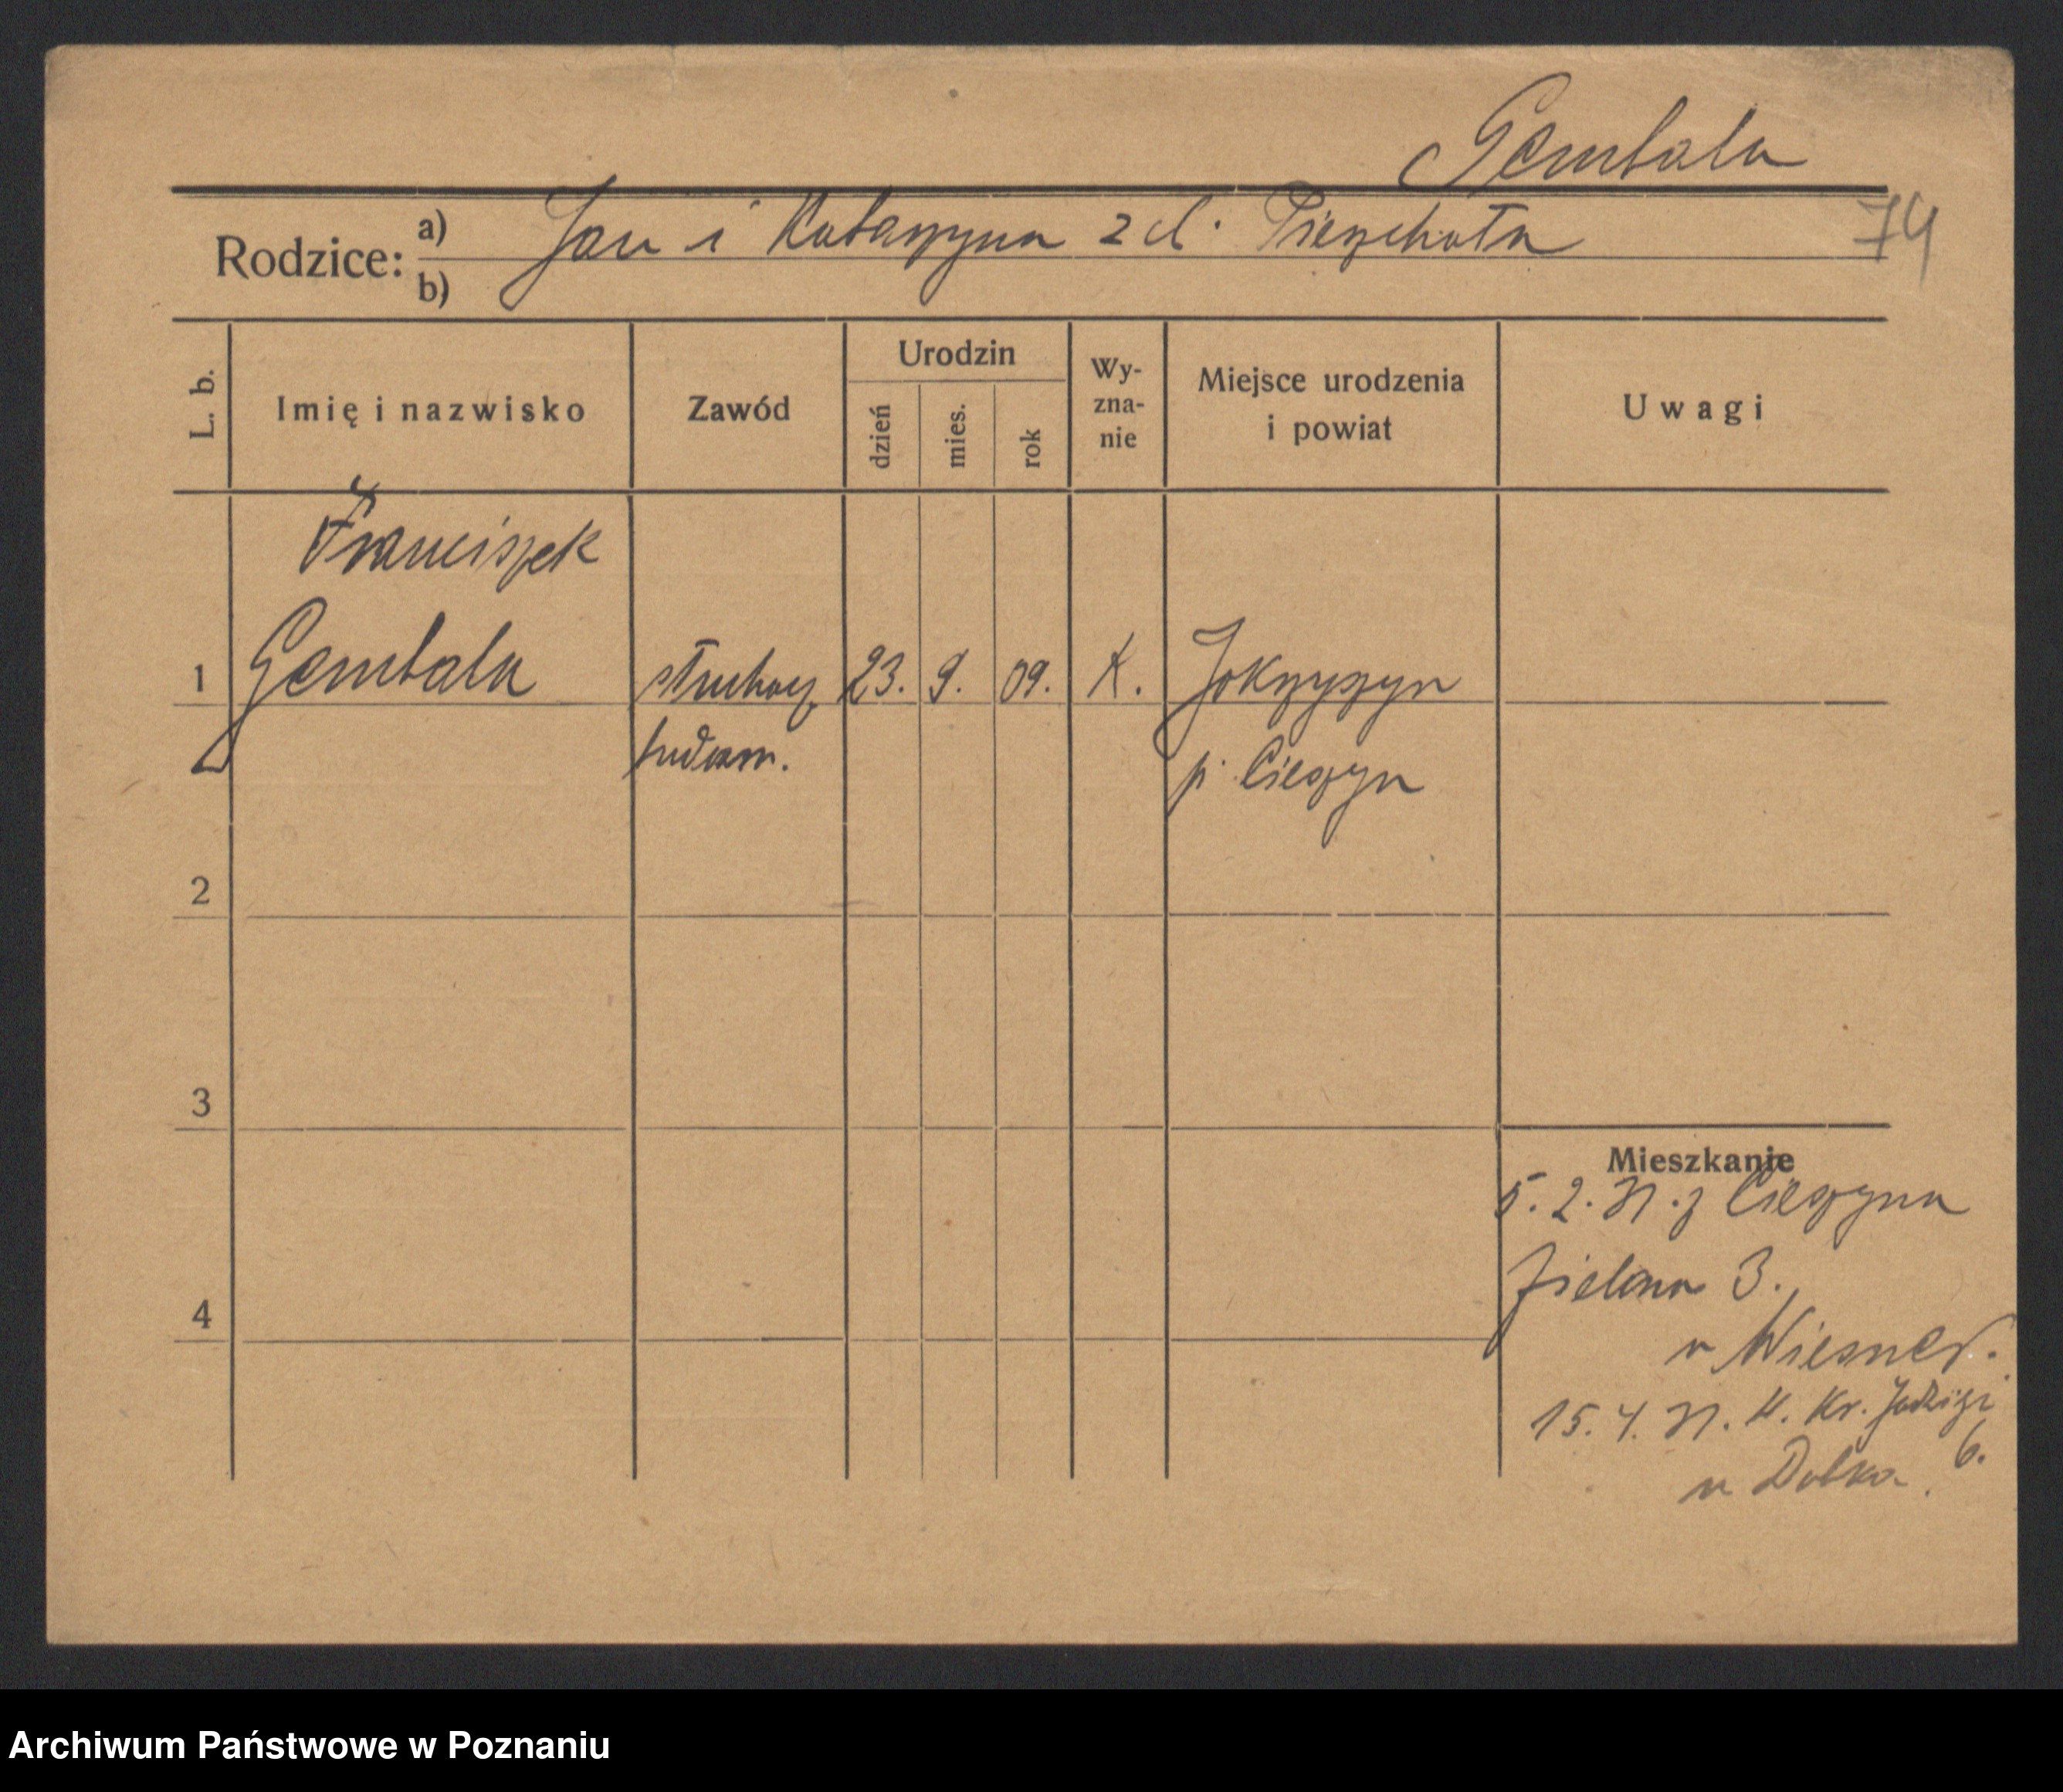 Gembala
74
Rodzice: a) Jan i Katarzyna z d. Pierzchała
b)
L. b. Imię i nazwisko Zawód Urodzin dzień mies. rok Wy-zna-nie Miejsce urodzenia i powiat Uwagi
Franciszek
1 Gembala słuchacz 23. 9. 09. K.
p. Cieszyn
2
3
4
Mieszkanie
5. 2. 31. z Cieszyna
Zielona 3.
u Wiesner.
15. 4. 31. Kr. Jadwigi 6.
u
Archiwum Państwowe w Poznaniu